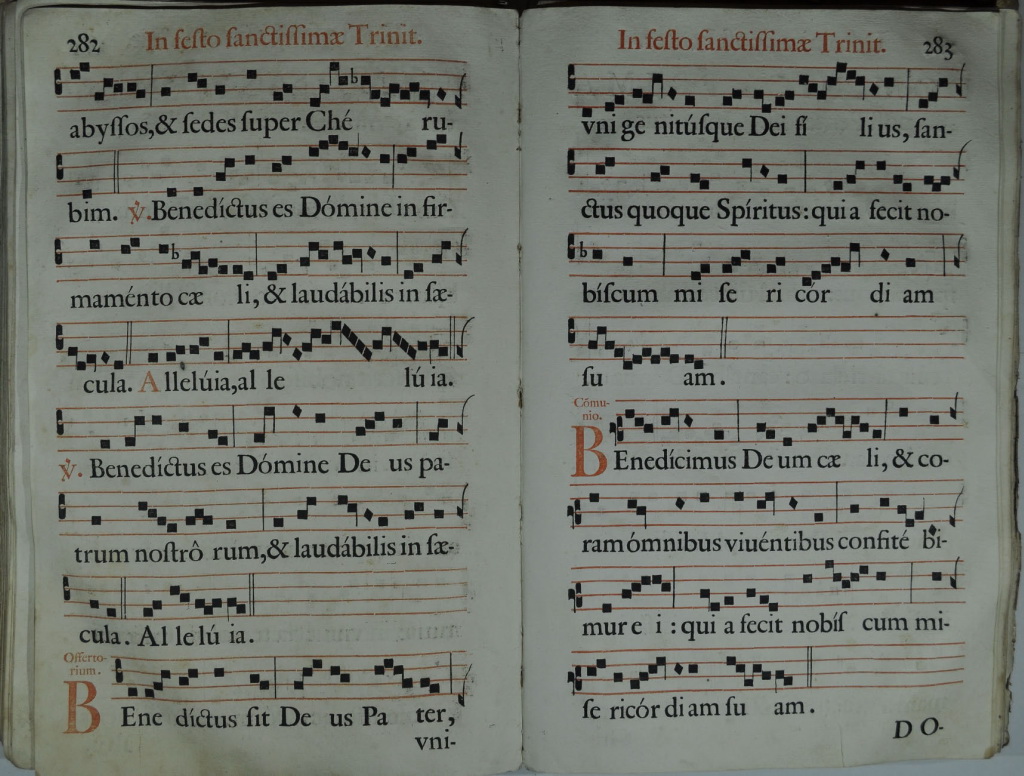 282 In festo sanctissimæ Trinit.
abyssos, & sedes super Ché ru-
bim. ℣. Benedíctus es Dómine in fir-
maménto cæ li, & laudábilis in sæ-
cula. A llelúia, al le lú ia.
℣. Benedíctus es Dómine De us pa-
trum nostrô rum, & laudábilis in sæ-
cula. Al le lú ia.
Offerto-
rium.
B Ene díctus sit De us Pa ter,
vni-
In festo sanctissimæ Trinit. 283
vni ge nitúsque Dei fí li us, san-
ctus quoque Spíritus: qui a fecit no-
bíscum mi se ri cór di am
su am.
Cómu-
nio.
B Enedícimus De um cæ li, & co-
ram ómnibus viuéntibus confité bi-
mur e i: qui a fecit nobís cum mi-
se ricór di am su am.
D O-